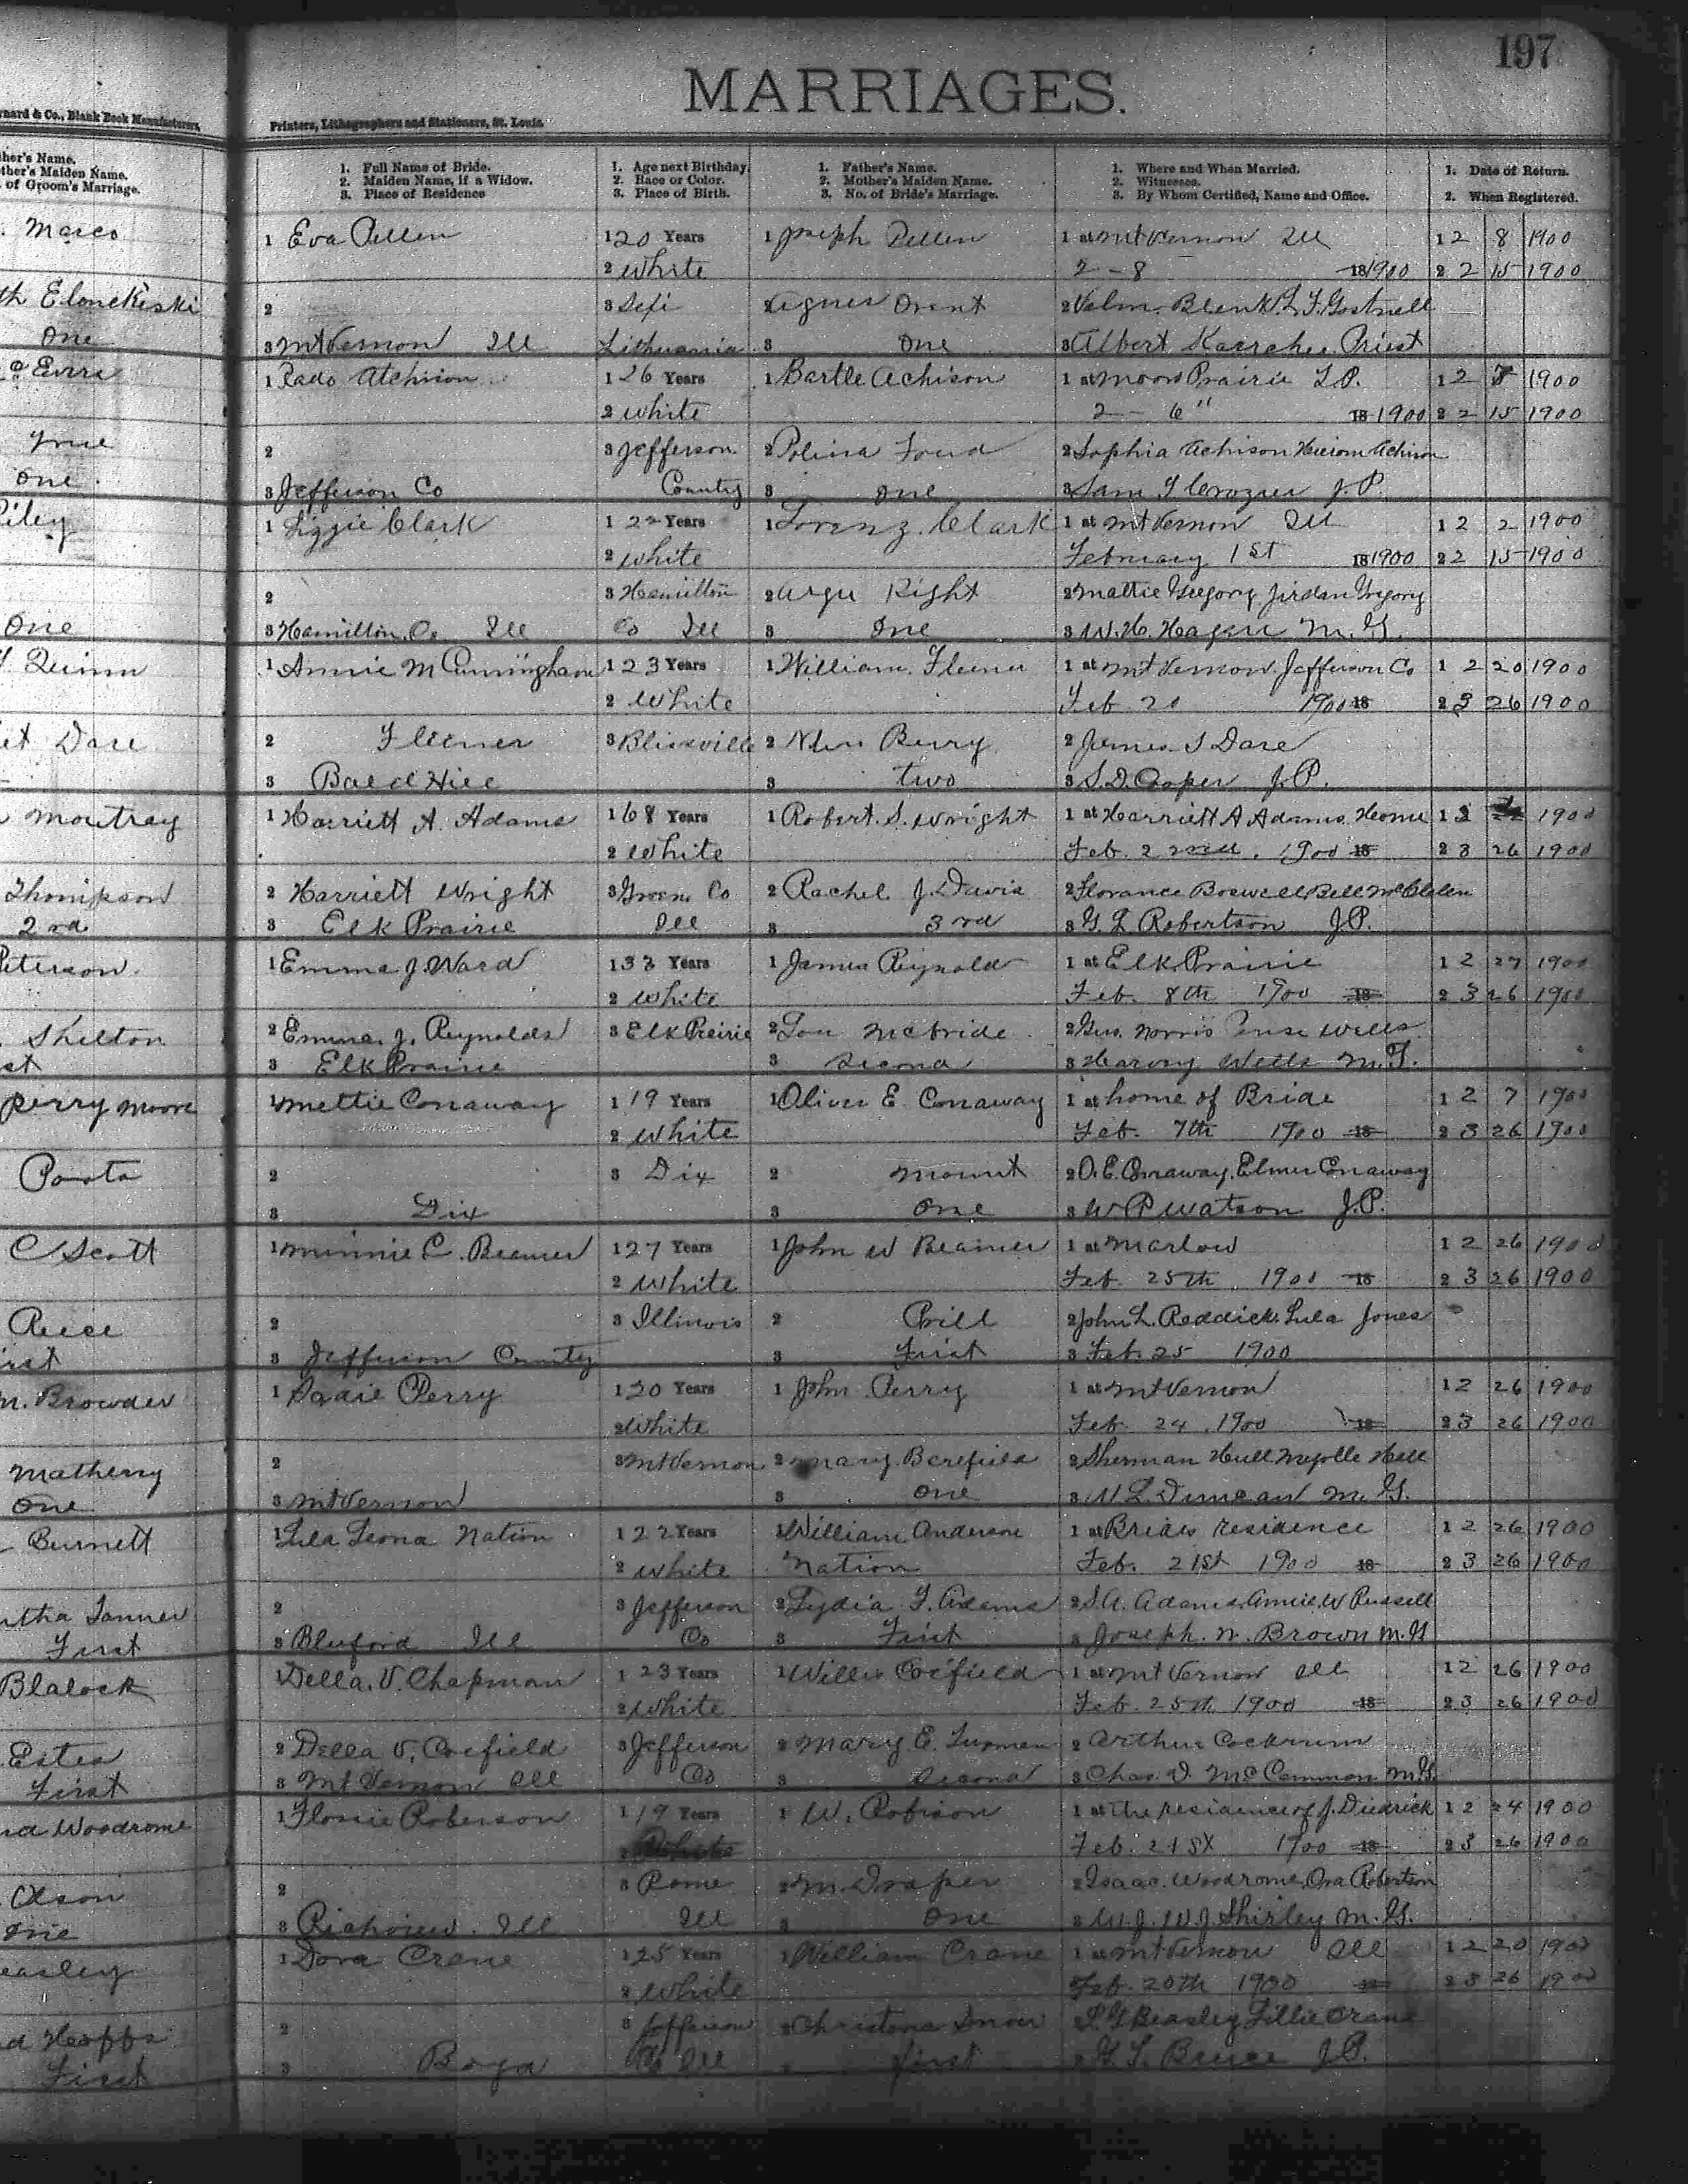 197
MARRIAGES.
nard & Co., Blank Book Manufacturers,
Printers, Lithographers and Stationers, St. Louis.
ther's Name.
ther's Maiden Name.
of Groom's Marriage.
1. Full Name of Bride.
2. Maiden Name, if a Widow.
3. Place of Residence
1. Age next Birthday.
2. Race or Color.
3. Place of Birth.
1. Father's Name.
2. Mother's Maiden Name.
3. No. of Bride's Marriage.
1. Where and When Married.
2. Witnesses.
3. By Whom Certified, Name and Office.
1. Date of Return.
2. When Registered.
1 Eva Pellen 1 20 Years 1 Joseph Pellen 1 at Mt Vernon Ill 1 2 8 1900
2 White 2 - 8 18 1900 2 2 15 1900
2 3 2 Agnes Orent 2
One 3 Mt Vernon Ill Lithuania 3 One 3 Albert Priest
1 Atchison 1 26 Years 1 Bartle Achison 1 at Moors Prairie 1 2 1900
2 White 2 - 6" 18 1900 2 2 15 1900
2 3 Jefferson 2 2 Sophia Achison Achison
One 3 Jefferson Co County 3 One 3 Sam Crozier J.P.
Riley 1 Lizzie Clark 1 22 Years 1 Lorenz Clark 1 at Mt Vernon Ill 1 2 2 1900
2 White February 1st 18 1900 2 2 15 1900
2 3 Hamilton 2 Right 2 Mattie Gregory Jirdan Gregory
One 3 Hamilton Co Ill Co Ill 3 One 3 W. H. M. G.
Quinn 1 Annie M Cunningham 1 23 Years 1 William Fleener 1 at Mt Vernon Jefferson Co 1 2 20 1900
2 White Feb 20 1900 18 2 3 26 1900
Dare 2 Fleener 3 2 Berry 2 James S Dare
3 Bald Hill 3 two 3 S. D. Cooper J.P.
Montray 1 Harriett A. Adams 1 68 Years 1 Robert S. Wright 1 at Harriett A Adams Home 1 3 1900
2 White Feb. 22nd. 1900 18 2 3 26 1900
Thompson 2 Harriett Wright 3 Green Co 2 Rachel J. Davis 2 Florance Boswell Bell McClelen
2nd 3 Elk Prairie Ill 3 3rd 3 G. L Robertson J.P.
Peterson 1 Emma J. Ward 1 33 Years 1 James Reynolds 1 at Elk Prairie 1 2 27 1900
2 White Feb. 8th 1900 18 2 3 26 1900
Shelton 2 Emma J. Reynolds 3 Elk Prairie 2 Lou McBride 2 Gus. Norris Wells
st 3 Elk Prairie 3 Second 3 Harvey Wells M.G.
Perry Moore 1 Mettie Conaway 1 19 Years 1 Oliver E. Conaway 1 at home of Bride 1 2 7 1900
2 White Feb. 7th 1900 18 2 3 26 1900
2 3 Dix 2 Mount 2 O. E. Conaway, Elmer Conaway
3 Dix 3 One 3 W P Watson J.P.
C Scott 1 Minnie C. Beamer 1 27 Years 1 John W Beamer 1 at Marlow 1 2 26 1900
2 White Feb. 25th 1900 18 2 3 26 1900
Reese 2 3 Illinois 2 Prill 2 John L. Reddick Lula Jones
irst 3 Jefferson County 3 First 3 Feb. 25 1900
m. Browder 1 Sadie Perry 1 20 Years 1 John Perry 1 at Mt Vernon 1 2 26 1900
2 White Feb. 24. 1900 18 2 3 26 1900
Matheny 2 3 Mt Vernon 2 Mary Berefield 2 Sherman Hull Hull
One 3 Mt Vernon 3 One 3 Duncan M. G.
Burnett 1 Lula Leona Nation 1 22 Years 1 William Anderson 1 at Brides residence 1 2 26 1900
2 White Nation Feb. 21st 1900 18 2 3 26 1900
Tanner 2 3 Jefferson 2 Lydia F. Adams 2 S. A. Adams, Annie W Russell
First 3 Bluford Ill Co 3 First 3 Joseph. N. Brown M. G
Blalock 1 Della. V. Chapman 1 23 Years 1 Willis Corfield 1 at Mt Vernon Ill 1 2 26 1900
2 White Feb. 25th 1900 18 2 3 26 1900
Estes 2 Della V. Corfield 3 Jefferson 2 Mary E. 2 Arthur Cockrum
First 3 Mt Vernon Ill Co 3 Second 3 Chas. D. McCammon M. G.
Woodrome 1 Flossie Roberson 1 19 Years 1 W. Robison 1 at The residence of J. Diedrick 1 2 24 1900
2 White Feb. 21st 1900 18 2 3 26 1900
Olson 2 3 Rome 2 M. Draper 2 Isaac. Woodrome, Ora Robertson
One 3 Richview. Ill Ill 3 One 3 W. J. Shirley M. G.
easley 1 Dora Crane 1 25 Years 1 William Crane 1 at Mt Vernon Ill 1 2 20 1900
2 White Feb. 20th 1900 18 2 3 26 1900
2 3 Jefferson 2 Christena Snow 2 Beasley Lillie Crane
First 3 Boyd Co Ill First Bruce J.P.